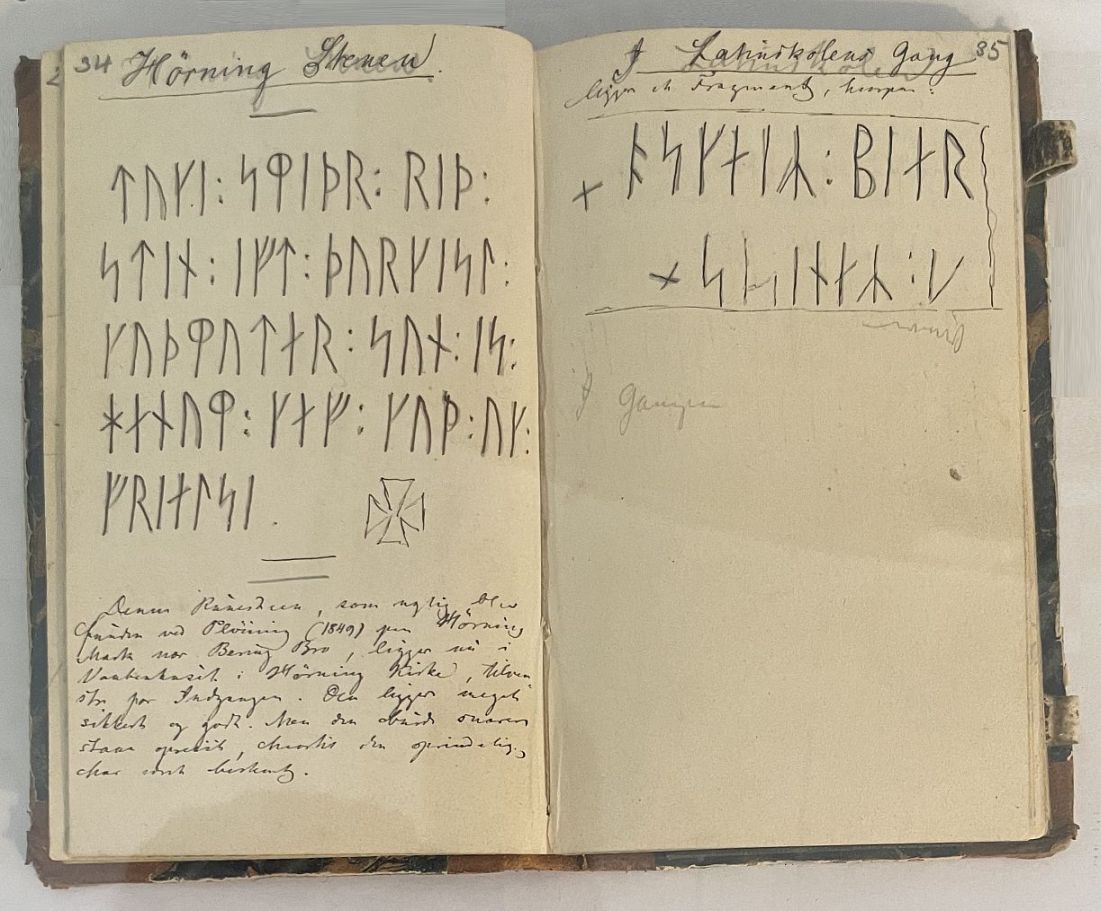 34 Hörning Stenen.
ᛏᚢᚴᛁ : ᛋᛘᛁᚦᚱ : ᚱᛁᚦ :
ᛋᛏᛁᚾ : ᛁᚠᛏ : ᚦᚢᚱᚴᛁᛋᛚ :
ᚴᚢᚦᛘᚢᛏᛅᚱ : ᛋᚢᚾ : ᛁᛋ :
ᚼᛅᚾᚢᛘ : ᚴᛅᚠ : ᚴᚢᚦ : ᚢᚴ :
ᚠᚱᛁᛅᛚᛋᛁ .
Denne Runesteen, som nylig blev
funden ved Plöining (1849) paa Hörning
Mark nær Bering Bro, ligger nu i
Vaabenhuset i Hörning Kirke, tilven-
stre for Indgangen. Den ligger meget
sikkert og godt. Men den burde snarere
staae opreist, hvortil den oprindelig
har været bestemt.
I Latinskolens Gang 35
ligger et Fragment, hvorpaa:
× ᚭᛋᚴᛅᛁᛦ : ᛒᛁᛅᚱ
I Gangen